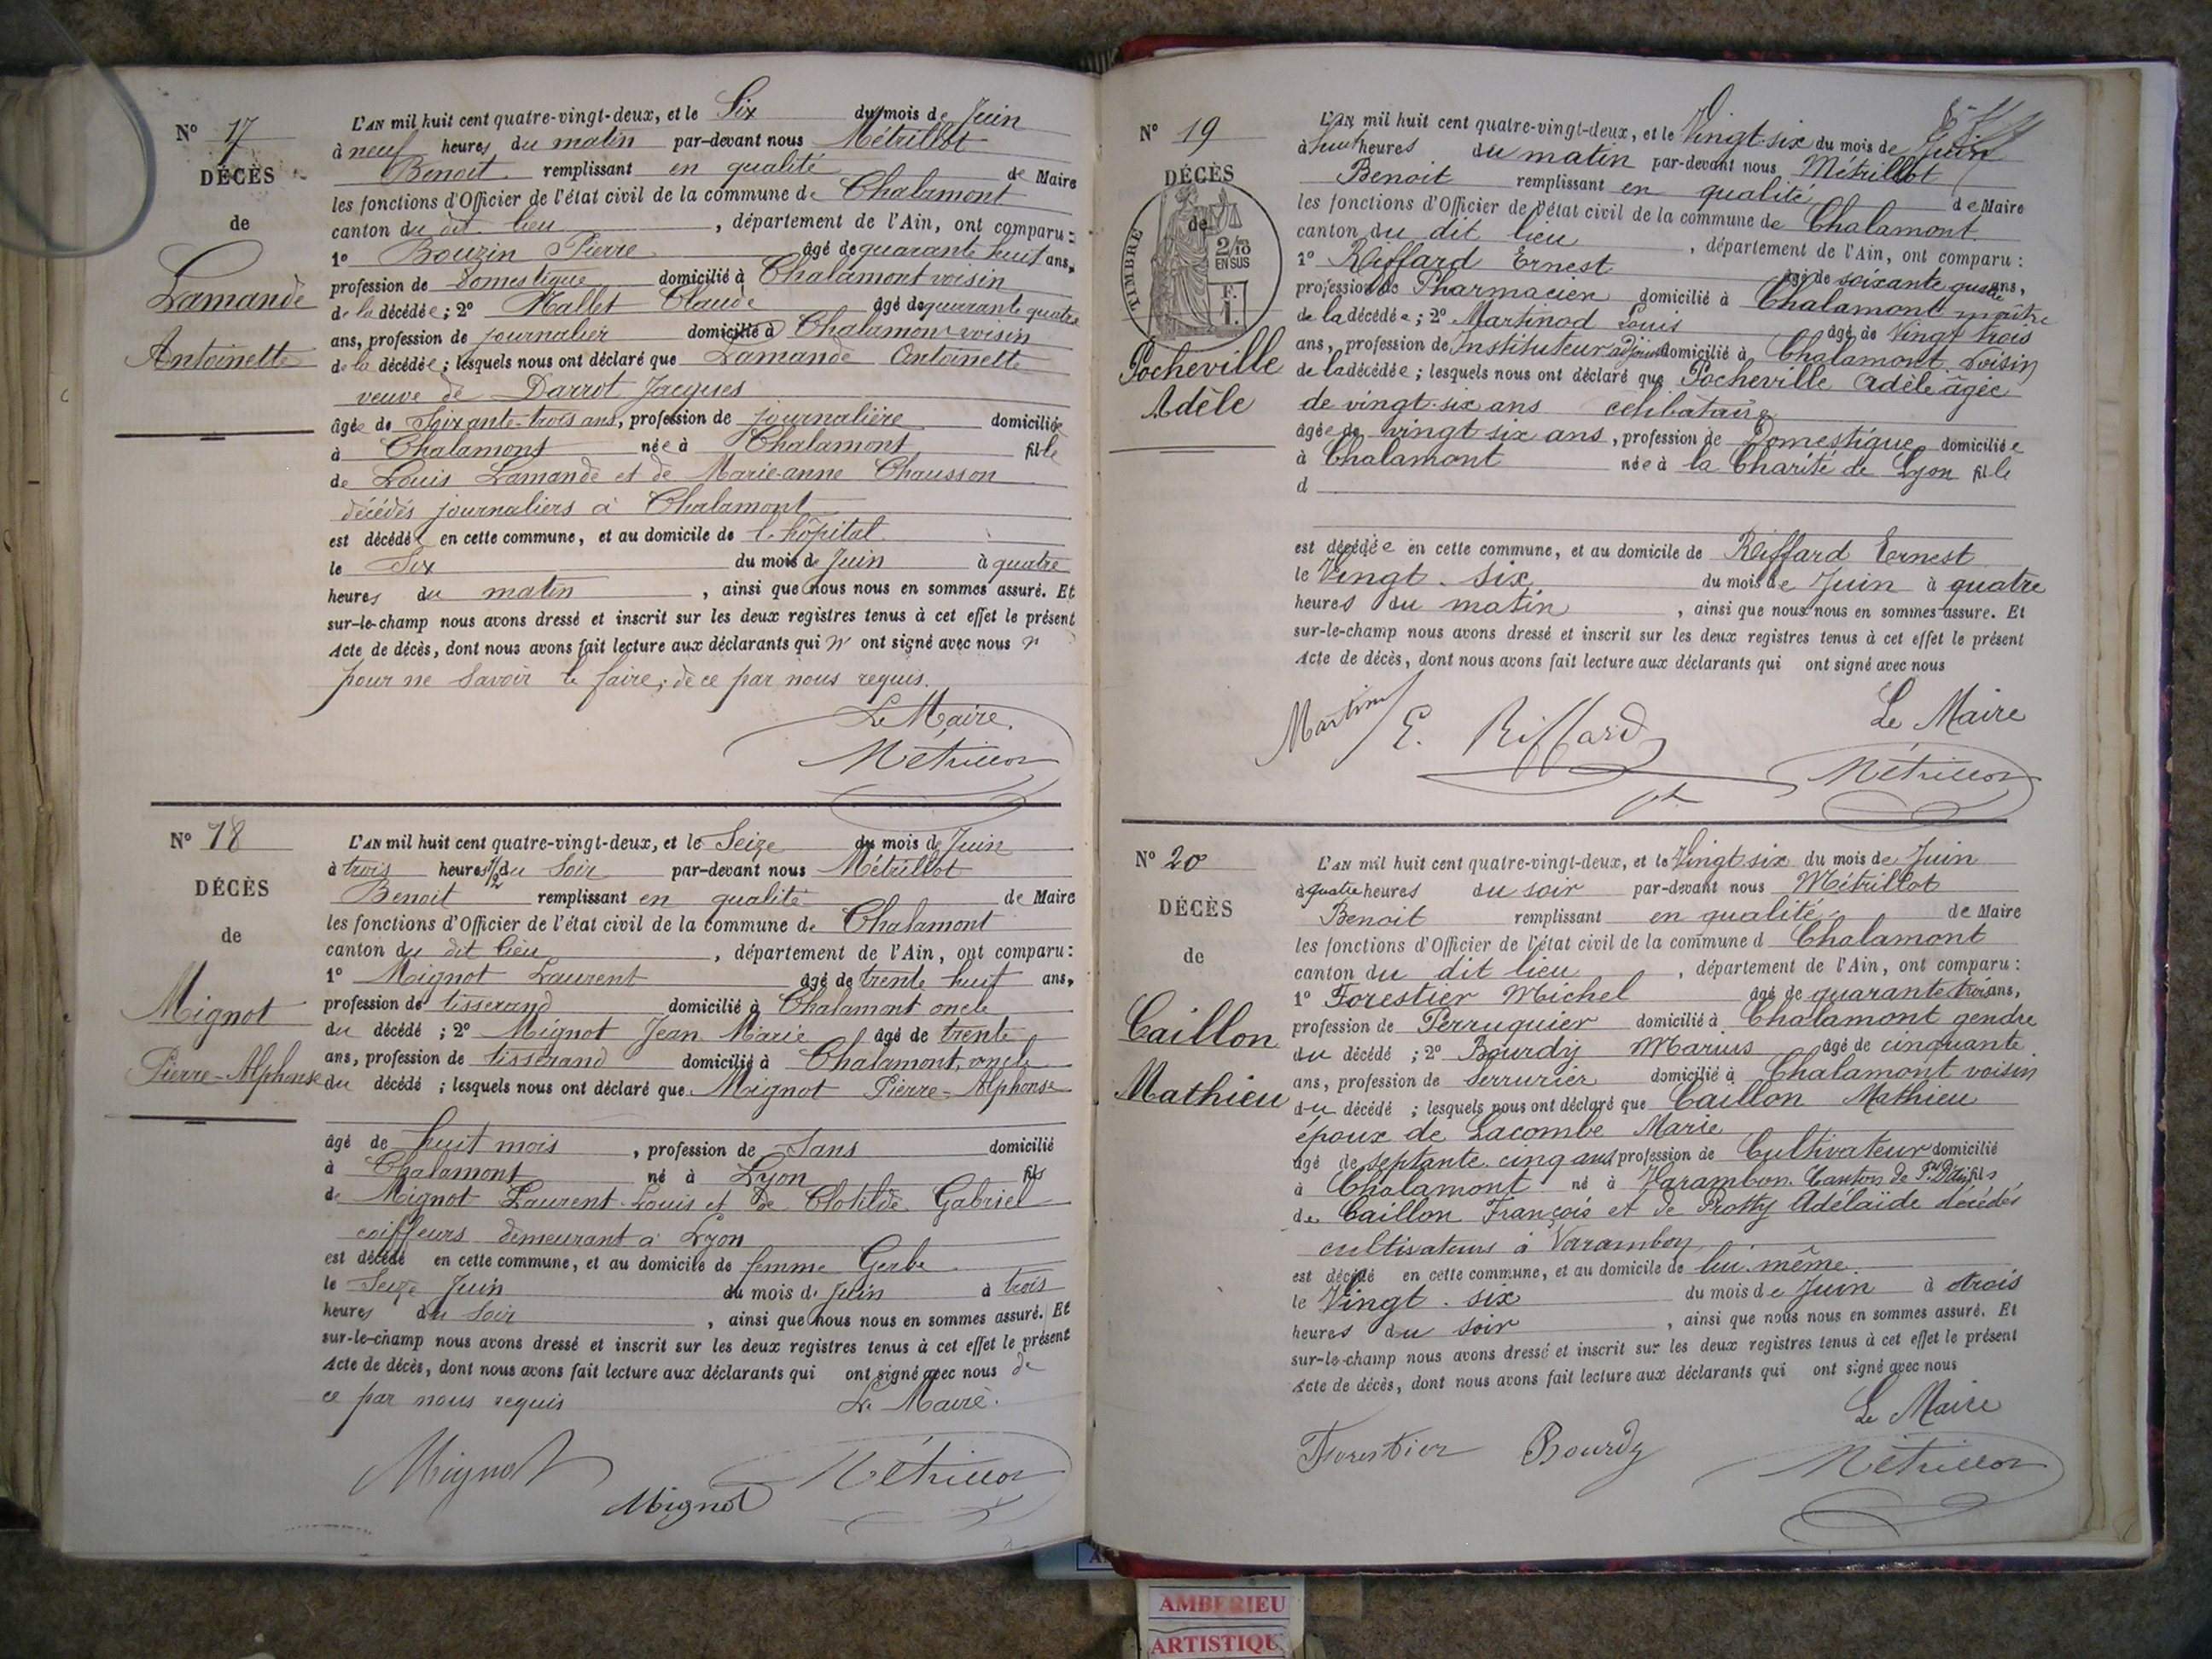 N° 17
DÉCÈS
de
Lamande
Antoinette
L'AN mil huit cent quatre-vingt-deux, et le Six du mois de Juin
à neuf heures du matin par-devant nous Métrillot
Benoit remplissant en qualité de Maire
les fonctions d'Officier de l'état civil de la commune de Chalamont
canton du dit lieu , département de l'Ain, ont comparu :
1° Bouzin Pierre âgé de quarante huit ans,
profession de Domestique domicilié à Chalamont voisin
de la décédée ; 2° Mallet Claude âgé de quarante quatre
ans, profession de journalier domicilié à Chalamont voisin
de la décédée ; lesquels nous ont déclaré que Lamande Antoinette
veuve de Darrot Jacques
âgée de Soixante-trois ans, profession de journalière domiciliée
à Chalamont née à Chalamont fille
de Louis Lamande et de Marie-anne Chausson
décédés journaliers à Chalamont
est décédée en cette commune, et au domicile de l'hôpital
le Six du mois de Juin à quatre
heures du matin , ainsi que nous nous en sommes assuré. Et
sur-le-champ nous avons dressé et inscrit sur les deux registres tenus à cet effet le présent
Acte de décès, dont nous avons fait lecture aux déclarants qui n' ont signé avec nous
pour ne savoir le faire ; de ce par nous requis.
Le Maire
Métrillot
N° 18
DÉCÈS
de
Mignot
Pierre-Alphonse
L'AN mil huit cent quatre-vingt-deux, et le Seize du mois de Juin
à trois heures 1/2 du Soir par-devant nous Métrillot
Benoit remplissant en qualité de Maire
les fonctions d'Officier de l'état civil de la commune de Chalamont
canton du dit lieu , département de l'Ain, ont comparu :
1° Mignot Laurent âgé de trente huit ans,
profession de tisserand domicilié à Chalamont oncle
du décédé ; 2° Mignot Jean Marie âgé de trente
ans, profession de tisserand domicilié à Chalamont, oncle
du décédé ; lesquels nous ont déclaré que Mignot Pierre-Alphonse
âgé de huit mois , profession de Sans domicilié
à Chalamont né à Lyon fils
de Mignot Laurent-Louis et de Clotilde Gabriel
coiffeurs demeurant à Lyon
est décédé en cette commune, et au domicile de femme Gerbe
le Seize Juin du mois de Juin à trois
heures du Soir , ainsi que nous nous en sommes assuré. Et
sur-le-champ nous avons dressé et inscrit sur les deux registres tenus à cet effet le présent
Acte de décès, dont nous avons fait lecture aux déclarants qui ont signé avec nous de
ce par nous requis Le Maire.
Mignot Mignot Métrillot
N° 19
DÉCÈS
de
TIMBRE
2/10
EN SUS
F.
1.
Pocheville
Adèle
L'AN mil huit cent quatre-vingt-deux, et le Vingt-six du mois de Juin
à huit heures du matin par-devant nous Métrillot
Benoit remplissant en qualité de Maire
les fonctions d'Officier de l'état civil de la commune de Chalamont
canton du dit lieu , département de l'Ain, ont comparu :
1° Riffard Ernest âgé de soixante quatre ans,
profession de Pharmacien domicilié à Chalamont maître
de la décédée ; 2° Martinod Louis âgé de Vingt trois
ans, profession de Instituteur adjoint domicilié à Chalamont voisin
de la décédée ; lesquels nous ont déclaré que Pocheville Adèle âgée
de vingt-six ans célibataire
âgée de vingt six ans , profession de Domestique domiciliée
à Chalamont née à la Charité de Lyon fille
d
est décédée en cette commune, et au domicile de Riffard Ernest
le Vingt-six du mois de Juin à quatre
heures du matin , ainsi que nous nous en sommes assuré. Et
sur-le-champ nous avons dressé et inscrit sur les deux registres tenus à cet effet le présent
Acte de décès, dont nous avons fait lecture aux déclarants qui ont signé avec nous
Le Maire
E. Riffard Métrillot
ph
N° 20
DÉCÈS
de
Caillon
Mathieu
L'AN mil huit cent quatre-vingt-deux, et le Vingt six du mois de Juin
à quatre heures du soir par-devant nous Métrillot
Benoit remplissant en qualité de Maire
les fonctions d'Officier de l'état civil de la commune d Chalamont
canton du dit lieu , département de l'Ain, ont comparu :
1° Forestier Michel âgé de quarante trois ans,
profession de Perruquier domicilié à Chalamont gendre
du décédé ; 2° Bourdy Marius âgé de cinquante
ans, profession de Serrurier domicilié à Chalamont voisin
du décédé ; lesquels nous ont déclaré que Caillon Mathieu
époux de Lacombe Marie
âgé de septante cinq ans profession de Cultivateur domicilié
à Chalamont né à Varambon Canton de Pt D'Ain fils
de Caillon François et de Protty Adélaïde décédés
cultivateurs à Varambon
est décédé en cette commune, et au domicile de lui-même
le Vingt-six du mois de Juin à trois
heures du soir , ainsi que nous nous en sommes assuré. Et
sur-le-champ nous avons dressé et inscrit sur les deux registres tenus à cet effet le présent
Acte de décès, dont nous avons fait lecture aux déclarants qui ont signé avec nous
Le Maire
Forestier Bourdy Métrillot
AMBERIEU
ARTISTIQU